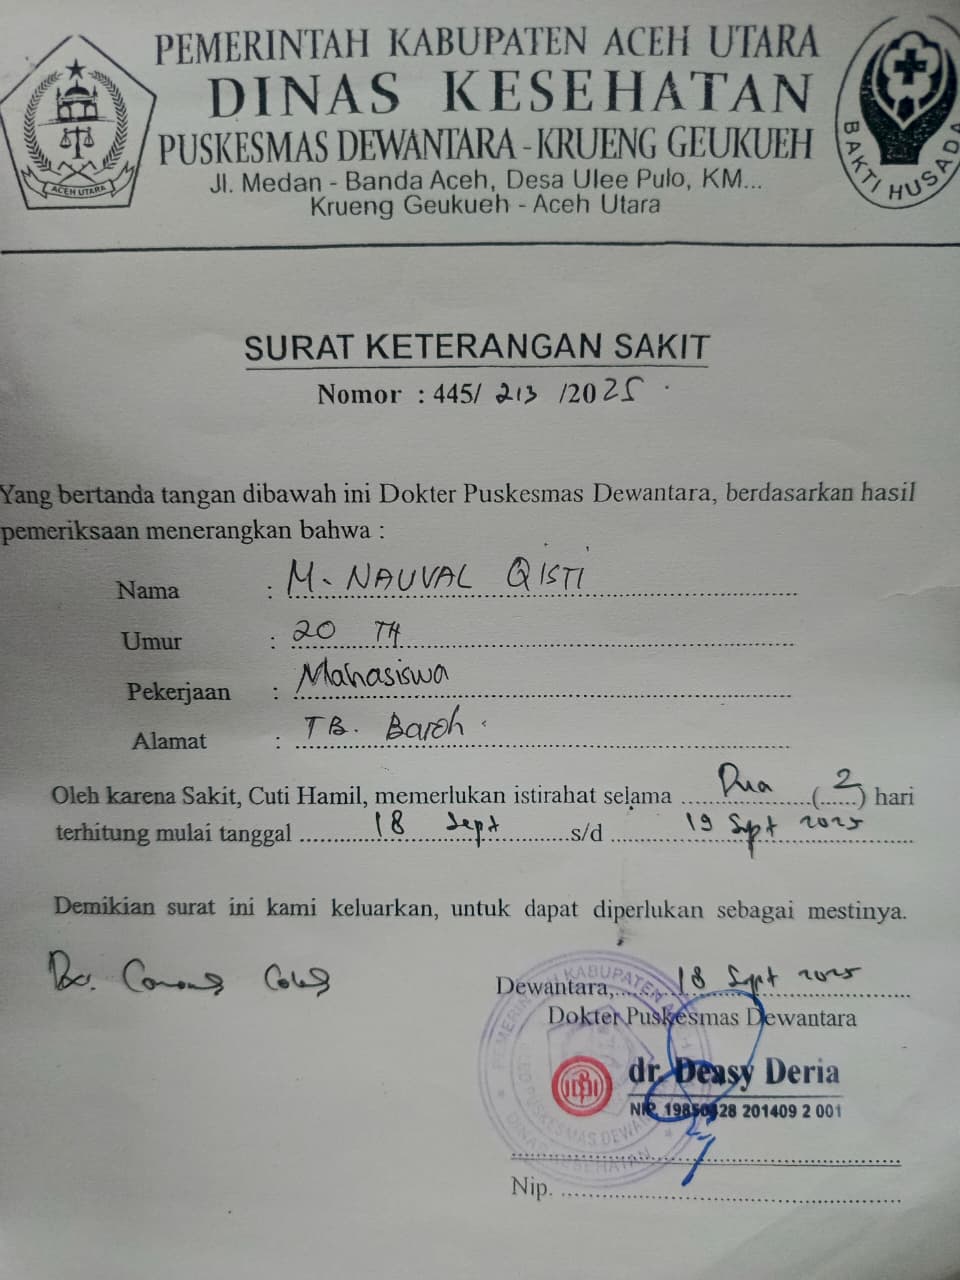 PEMERINTAH KABUPATEN ACEH UTARA
DINAS KESEHATAN
PUSKESMAS DEWANTARA - KRUENG GEUKUEH
Jl. Medan - Banda Aceh, Desa Ulee Pulo, KM...
Krueng Geukueh - Aceh Utara
ACEH UTARA
BAKTI HUSADA
SURAT KETERANGAN SAKIT
Nomor : 445/ 213 /2025
Yang bertanda tangan dibawah ini Dokter Puskesmas Dewantara, berdasarkan hasil
pemeriksaan menerangkan bahwa :
Nama : M. NAUVAL QISTI
Umur : 20 TH
Pekerjaan : Mahasiswa
Alamat : TB. Baroh
Oleh karena Sakit, Cuti Hamil, memerlukan istirahat selama Dua (2) hari
terhitung mulai tanggal 18 Sept s/d 19 Sept 2025
Demikian surat ini kami keluarkan, untuk dapat diperlukan sebagai mestinya.
Dewantara, 18 Sept 2025
Dokter Puskesmas Dewantara
dr. Deasy Deria
NIP. 19850428 201409 2 001
Nip.